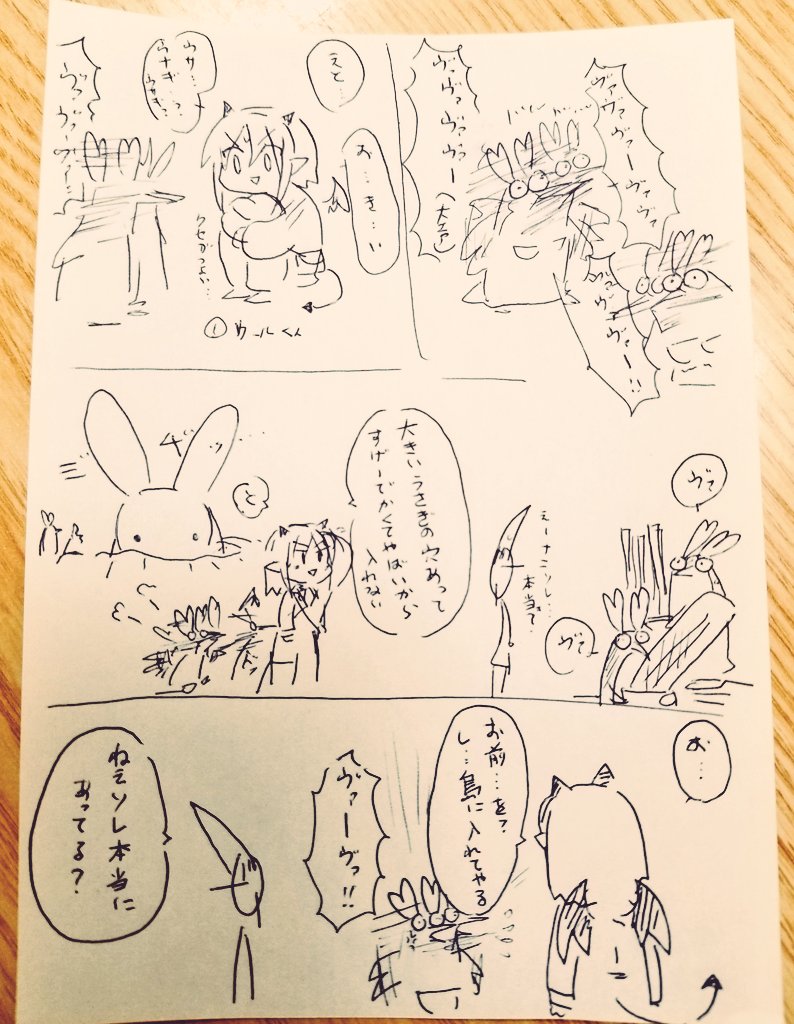 ヴァヴァヴァーヴァヴァ
ヴァヴァヴァヴァー(大声)
ヴァヴァヴァー!!
えと…
お…き…い
ウサ…
ウナギ…?
うさぎ…?
クセがつよい…
①ウールくん
ヴァヴァヴァーヴァー
ヴァ
ヴァ
えーナニソレ…
本当で
大きいうさぎの穴あって
すげーでかくてやばいから
入れない
と
お…
お前…を?
し…島に入れてやる
ヴァーヴァ!!
ねぇソレ本当に
あってる?